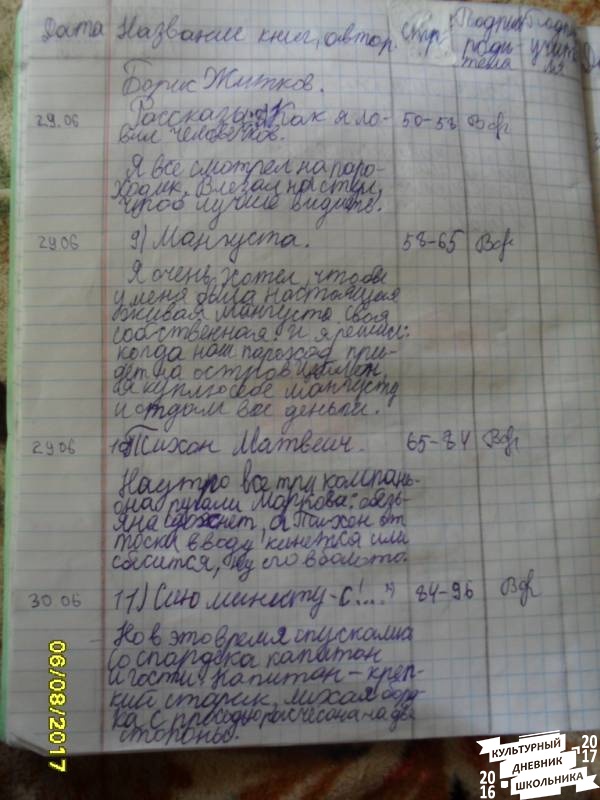 Дата Название книг, автор. Стр. Подпись родителя Подпись учителя
Борис Житков.
29.06 Рассказы: Как я ло- 50-58
вил человечков.
Я все смотрел на паро-
ходик. Влезал на стул,
чтоб лучше видить.
29.06 9) Мангуста. 58-65
Я очень хотел, чтобы
у меня была настоящая
живая мангуста. Своя
собственная. И я решил:
когда наш пароход при-
дет на остров Цейлон,
я куплю себе мангусту
и отдам все деньги.
29.06 10) Тихон Матвеич. 65-84
Наутро все три компань-
она ругали Маркова: обезь-
яна сдохнет, а Тихон от
тоски в воду кинется или
сбесится, ну его в болото.
30.06 11) Сию минуту-с!..." 84-96
Но в это время спускались
со спардека капитан
и гости. Капитан - креп-
кий старик, лихая бород-
ка с проседью расчесана на две
стороны.
06/08/2017
КУЛЬТУРНЫЙ
ДНЕВНИК
ШКОЛЬНИКА
2016
2017